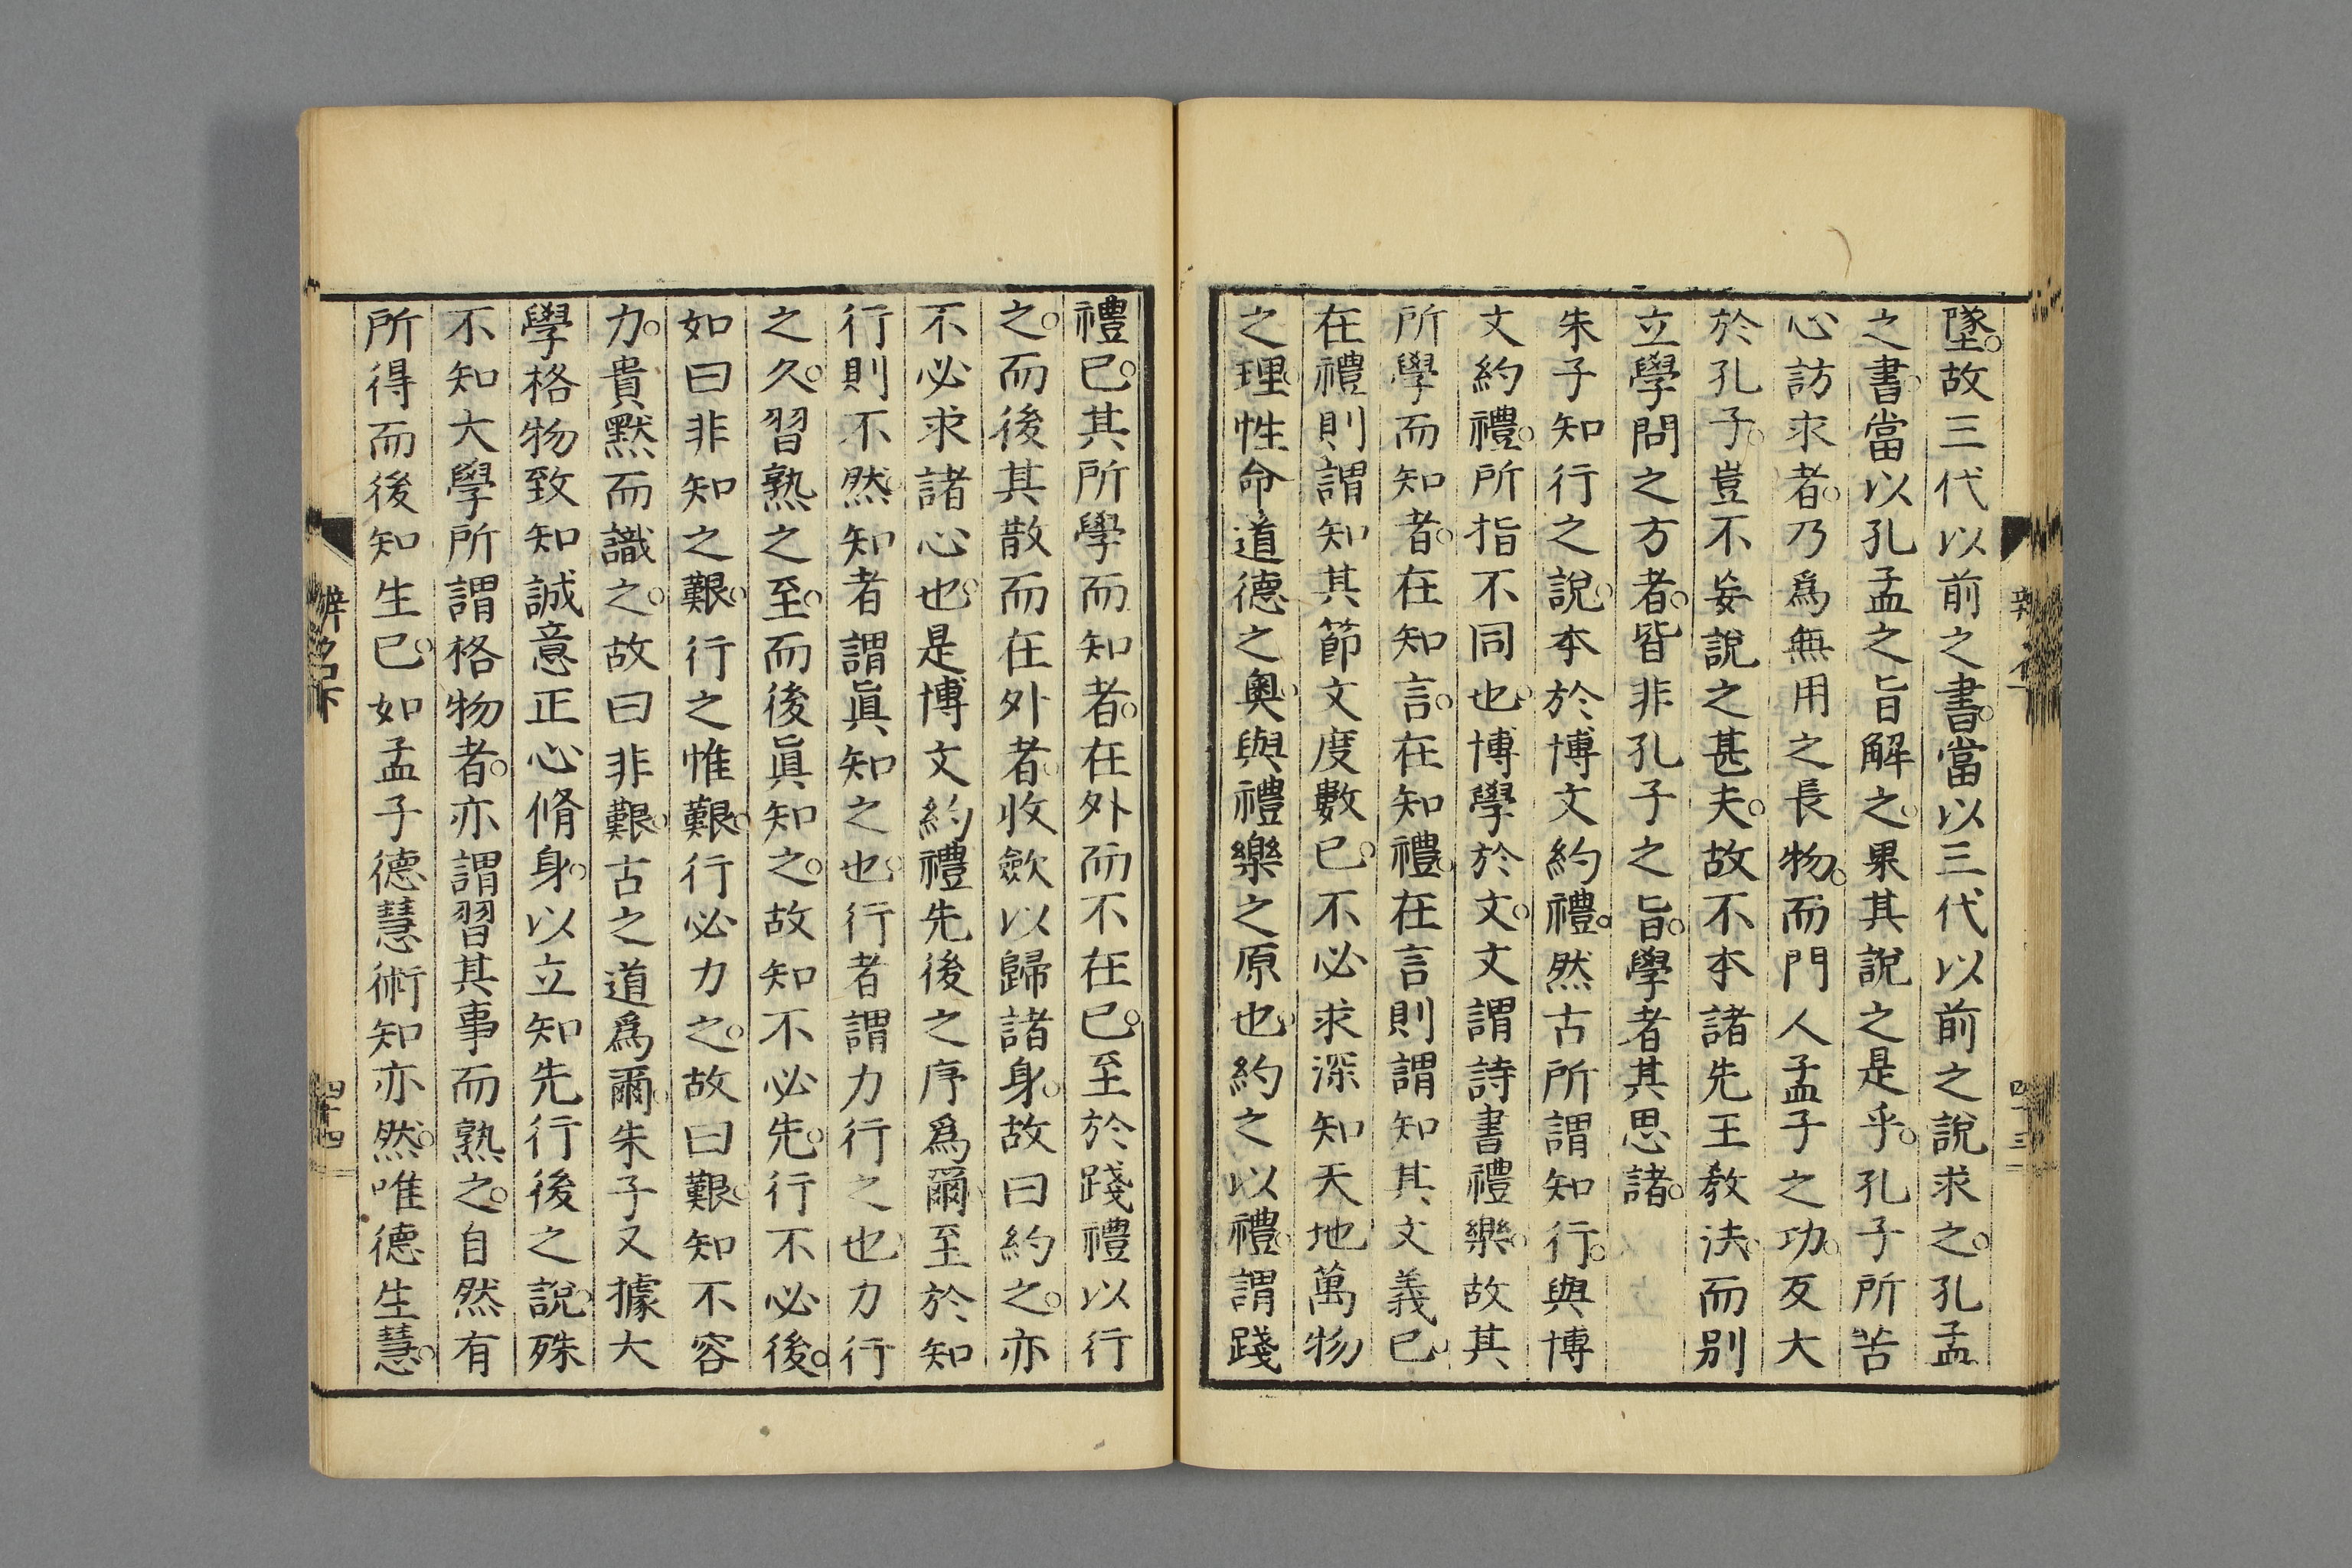 墜。故三代以前之書。當以三代以前之說求之。孔孟
之書。當以孔孟之旨解之。果其說之是乎。孔子所苦
心訪求者。乃爲無用之長物。而門人孟子之功。反大
於孔子。豈不妄說之甚夫。故不本諸先王教法。而別
立學問之方者。皆非孔子之旨。學者其思諸。
朱子知行之說。本於博文約禮。然古所謂知行。與博
文約禮。所指不同也。博學於文。文謂詩書禮樂。故其
所學而知者。在知言。在知禮。在言則謂知其文義已。
在禮則謂知其節文度數已。不必求深知天地萬物
之理。性命道德之奧。與禮樂之原也。約之以禮。謂踐
禮已。其所學而知者。在外而不在己。至於踐禮以行
之。而後其散而在外者。收歛以歸諸身。故曰約之。亦
不必求諸心也。是博文約禮先後之序爲爾。至於知
行則不然。知者謂眞知之也。行者謂力行之也。力行
之久。習熟之至。而後眞知之。故知不必先。行不必後。
如曰非知之艱。行之惟艱。行必力之。故曰艱。知不容
力。貴默而識之。故曰非艱。古之道爲爾。朱子又據大
學格物致知誠意正心脩身。以立知先行後之說。殊
不知大學所謂格物者。亦謂習其事而熟之。自然有
所得而後知生已。如孟子德慧術知亦然。唯德生慧。
辨名下
四十四